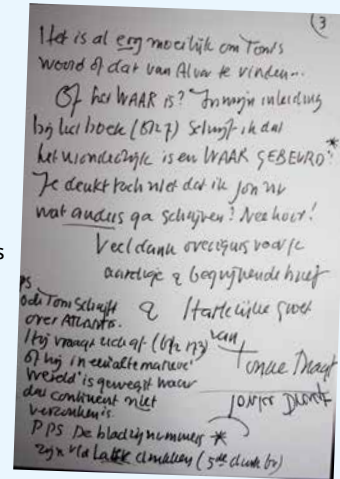 (3
Het is al erg moeilijk om Tom's
woord of dat van Alvar te vinden...
Of het WAAR is? In mijn inleiding
bij het boek (blz 7) schrijf ik dat
het wonderlijk is en WAAR GEBEURD*
Je denkt toch niet dat ik jou nu
wat anders ga schrijven? Nee hoor!
Veel dank overigens voor je
aardige & begrijpende brief
PS
ook Tom schrijft & Hartelijke groet
over Atlantis. van
Hij vraagt zich af (blz 173) Tonke Dragt
of hij in een alternatieve
wereld is geweest waar
dat continent niet
verzonken is.
PPS De bladzijnummers *
zijn v/d (5de druk)
s